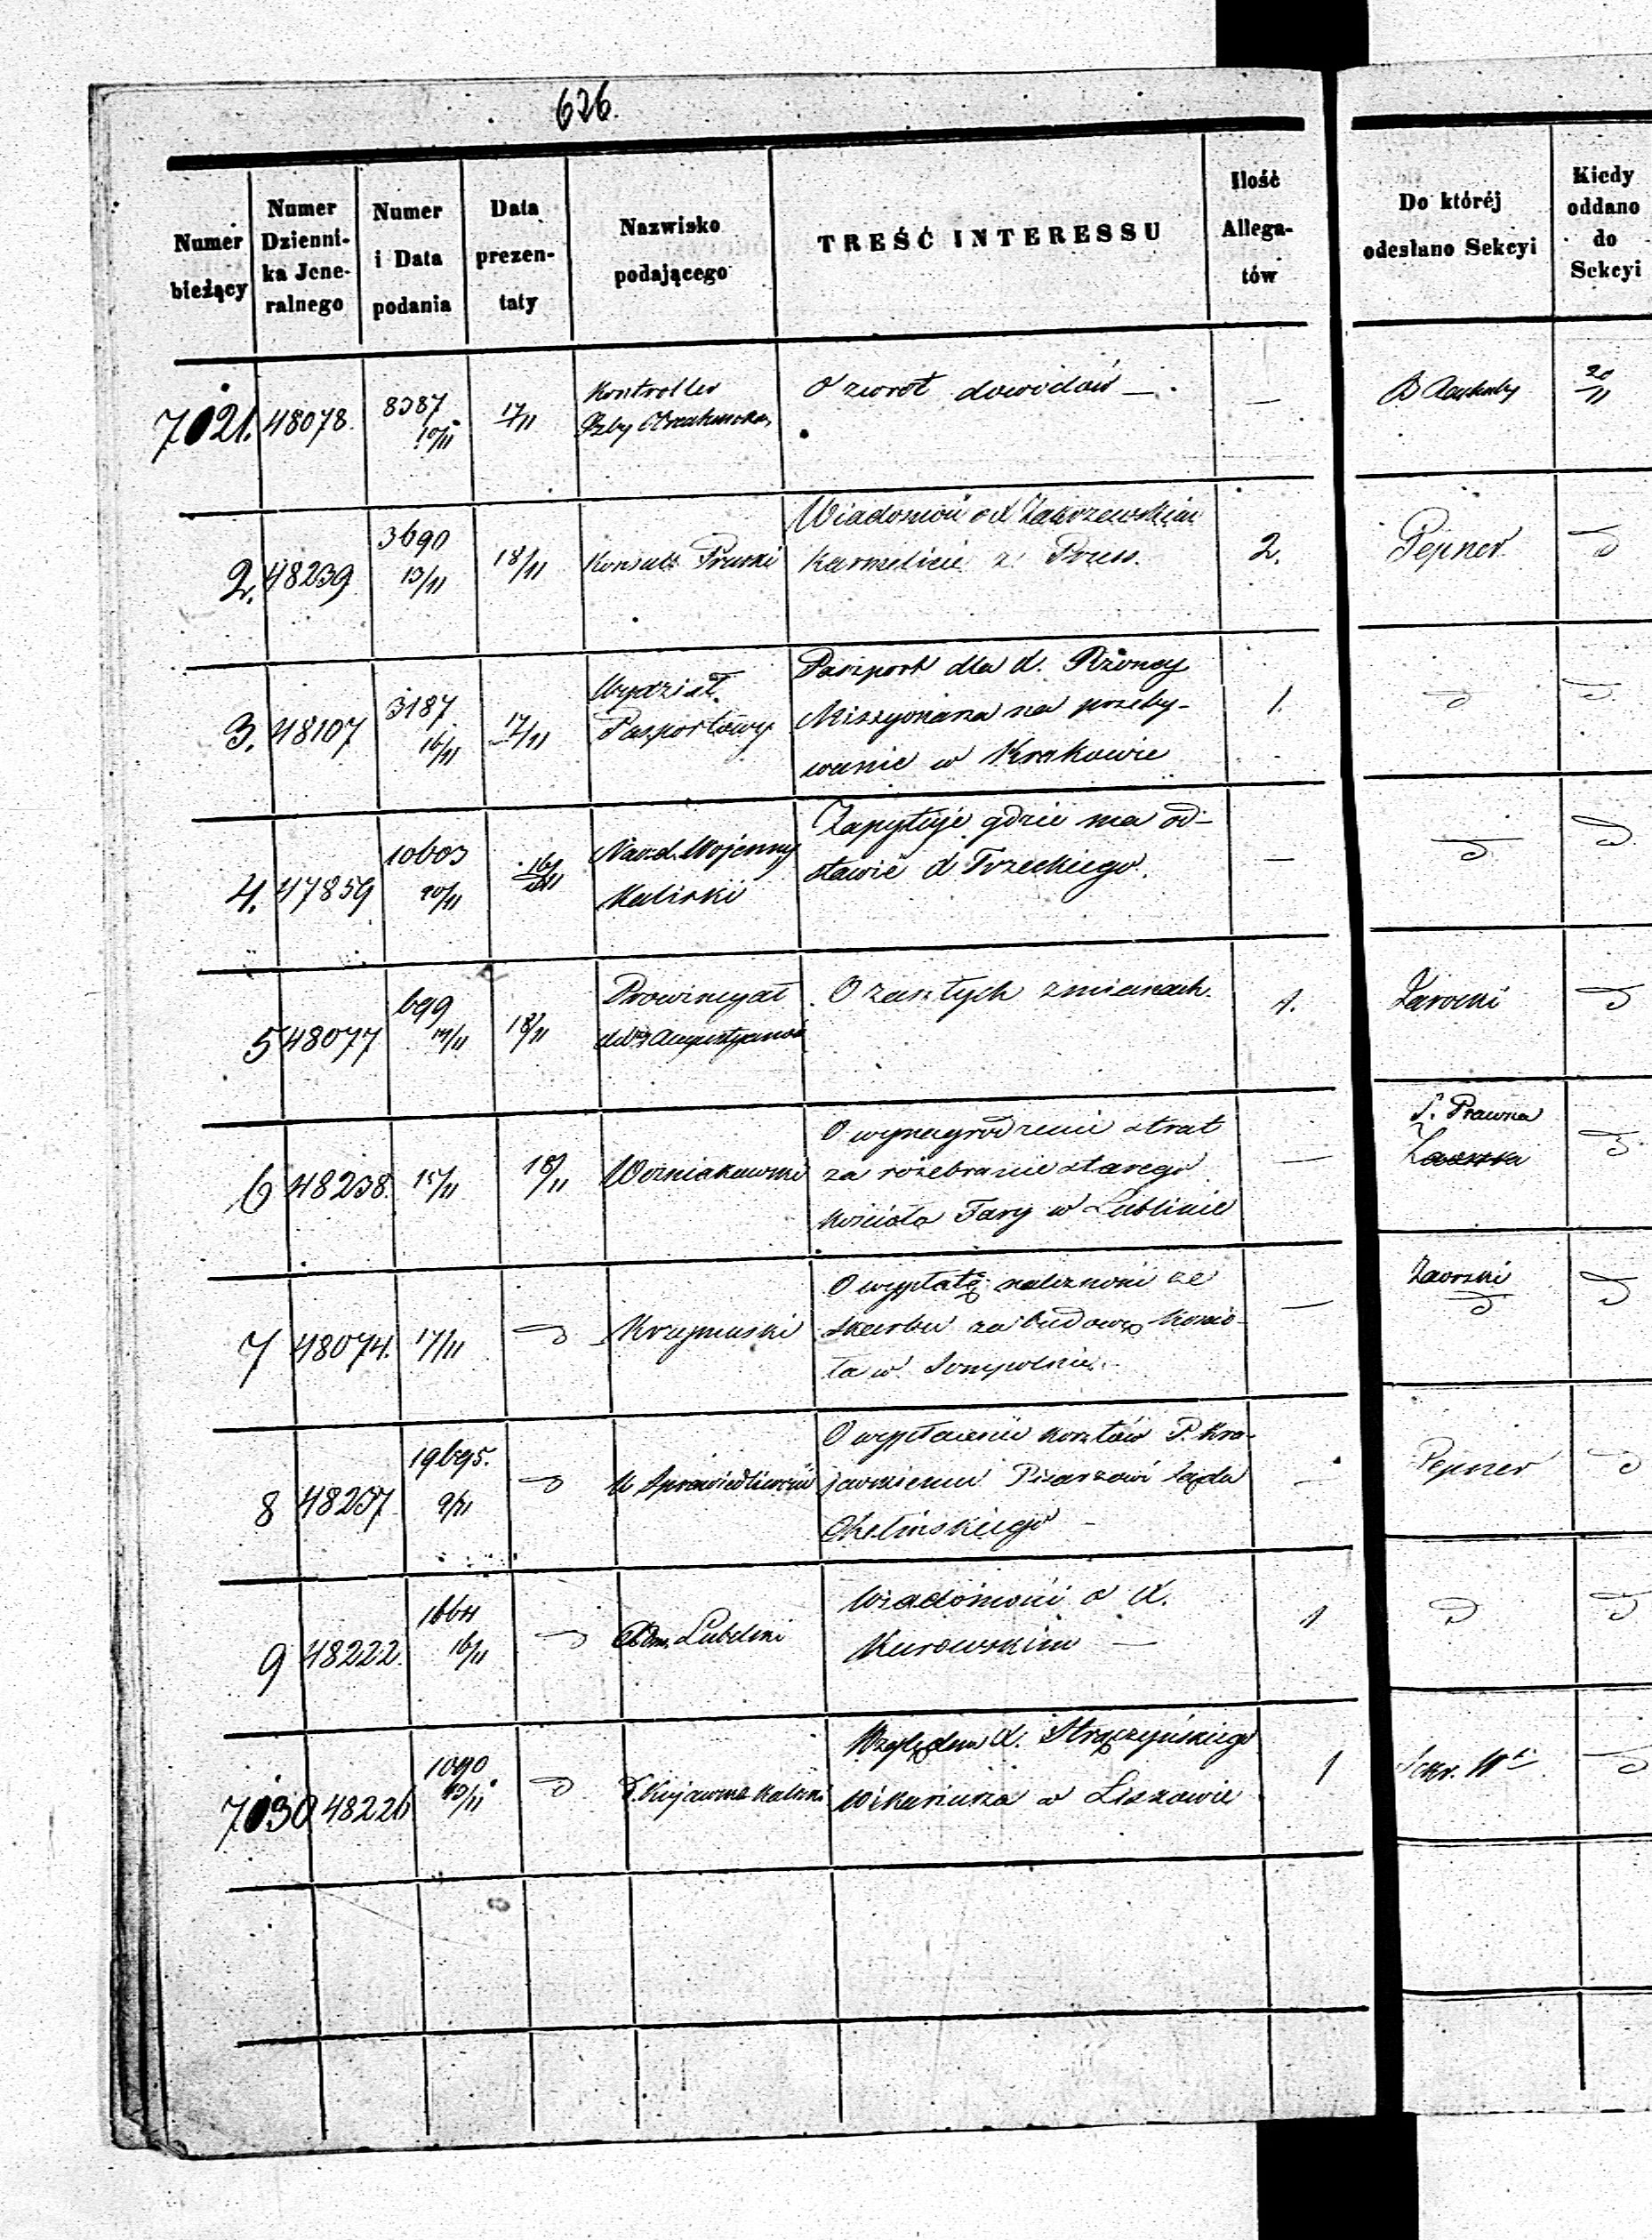 626.
Numer bieżący
Numer Dzienni-ka Jene-ralnego
Numer i Data podania
Data prezen-taty
Nazwisko podającego
TREŚĆ INTERESSU
Ilość Allega-tów
Do któréj odesłano Sekcyi
Kiedy oddano do Sekcyi
7021. 48078. 8387 10/11 17/11 Kontroller Izby Obrachunkow. O zwrot dowodów — — 20/11
2. 48239 3690 13/11 18/11 Konsul Pruski Wiadomość o X Zakrzewskim
Karmelicie z Pruss. 2. Pepner
3. 48107 3187 16/11 17/11 Wydział Pasportowy Paszport dla X.
Missyonarza na przeby-
wanie w Krakowie 1.
4. 47859 10603 10/11 Nacz. Wojenny Kaliski Zapytuje gdzie ma od-
stawić X Trzeckiego. —
5 48077 699 18/11 Prowincyał O zaszłych zmianach. 1.
6 48238. 15/11 18/11 O wynagrodzenie strat
za rozebranie starego
Kościoła Fary w Lublinie — S. Prawna
7 48074. 17/11 Krzymuski O wypłatę należności ze
skarbu za budowę kościo-
ła w Sompolnie. —
8 48237 19695. K Sprawiedliwości O wypłacenie kosztów P. Kra-
Pisarzowi Sądu
— Pepner
9 48222. 16/11 Adm. Lubelski Wiadomości o X.
Kurowskim — 1
7030 48226 1090 13/11 Względem X. Strączyńskiego
Wikariusza w Liszowie 1